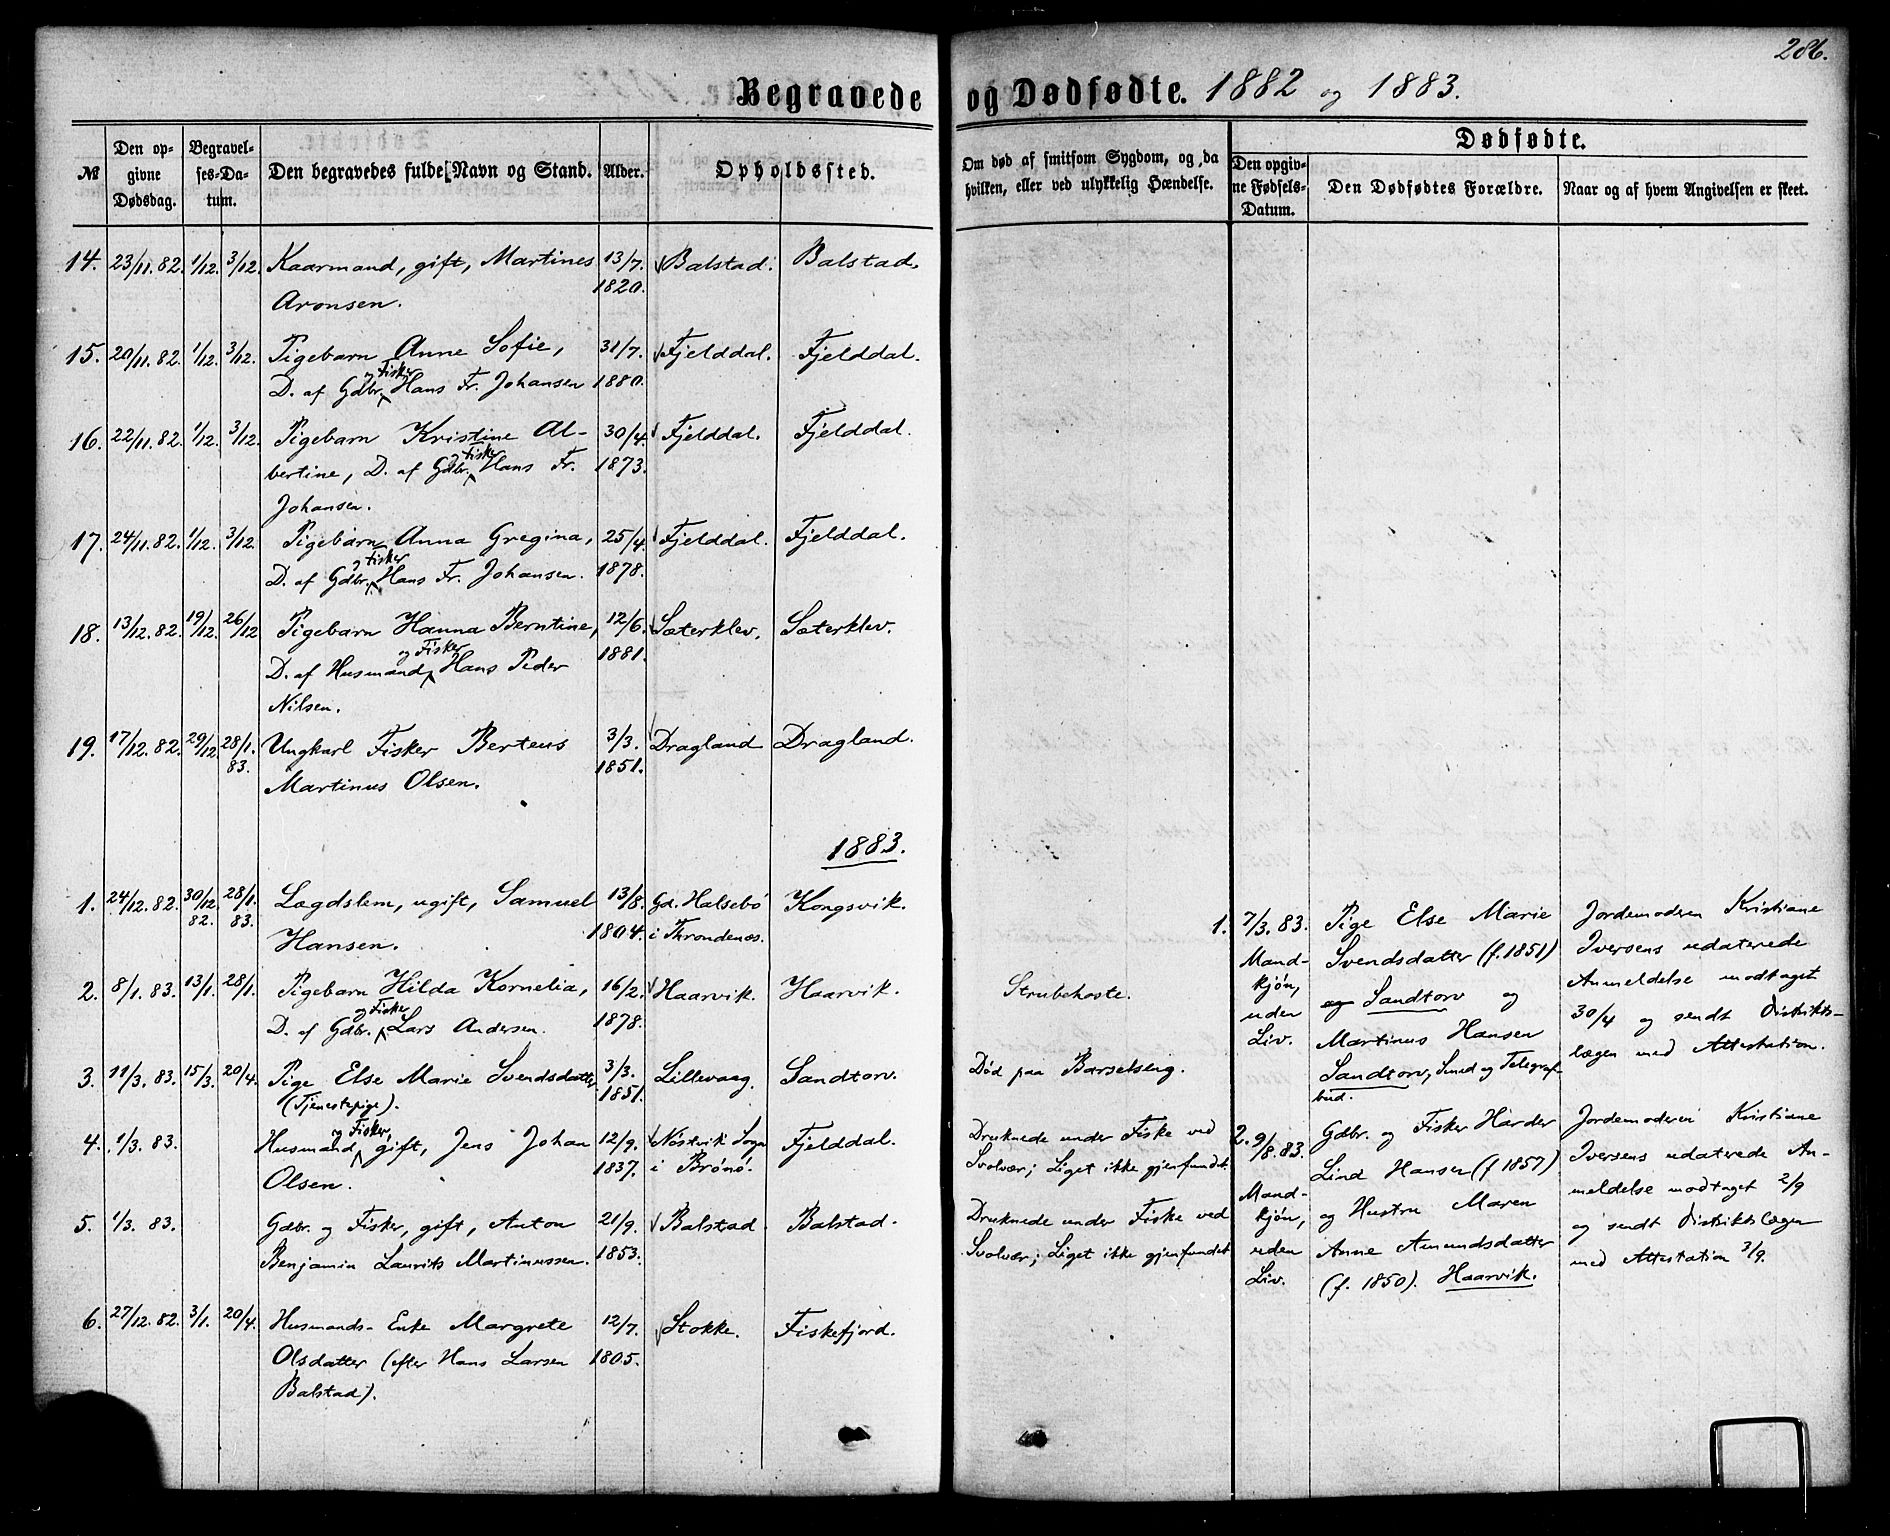 286.
Begravede og Dødfødte. 1882 og 1883.
№
Den opgivne Dødsdag.
Begravelses-Datum.
Den begravedes fulde Navn og Stand.
Alder.
Opholdssted.
Om død af smitsom Sygdom, og da hvilken, eller ved ulykkelig Hændelse.
Dødfødte.
Den opgivne Fødsels-Datum.
Den Dødfødtes Forældre.
Naar og af hvem Angivelsen er skeet.
14. 23/11. 82. 1/12. 3/12. Kaarmand, gift, Martines 13/7. Balstad. Balstad.
Aronsen. 1820.
15. 20/11. 82. 1/12. 3/12. Pigebarn Anne Sofie, 31/7. Fjelddal. Fjelddal.
D. af Gdbr. og Fisker Hans Fr. Johansen 1880.
16. 22/11. 82. 1/12. 3/12. Pigebarn Kristine Al- 30/4. Fjelddal. Fjelddal.
bertine, D. af Gdbr. og Fisker Hans Fr. 1873.
Johansen.
17. 24/11. 82. 1/12. 3/12. Pigebarn Anna Gregina, 25/4. Fjelddal. Fjelddal.
D. af Gdbr. og Fisker Hans Fr. Johansen. 1878.
18. 13/12. 82. 19/12. 26/12 Pigebarn Hanna Berntine, 12/6. Sæterklev. Sæterklev.
D. af Husmand og Fisker Hans Peder 1881.
Nilsen.
19. 17/12. 82. 29/12. 28/1. 83. Ungkarl Fisker Berteus 3/3. Dragland Dragland.
Martinus Olsen. 1851.
1883.
1. 24/12. 82. 30/12 82. 28/1. 83. Lægdslem, ugift, Samuel 13/8. Gd. Halsebø Kongsvik.
Hansen. 1804. i Throndenæs.
2. 8/1. 83. 13/1. 28/1. Pigebarn Hilda Kornelia, 16/2. Haarvik. Haarvik. Strubehoste.
D. af Gdbr. og Fisker Lars Andersen. 1878.
3. 11/3. 83. 15/3. 20/4. Pige Else Marie Svendsdatter 3/3. Lillevaag. Sandtorv. Død paa Barselseng.
(Tjenestepige). 1851.
4. 1/3. 83. Husmand og Fisker, gift, Jens Johan 12/9. Nøstvik Sogn Fjelddal. Druknede under Fiske ved
Olsen. 1837. i Brønø. Svolvær; Liget ikke gjenfundet.
5. 1/3. 83. Gdbr. og Fisker, gift, Anton 21/9. Balstad Balstad. Druknede under Fiske ved
Benjamin Laurits Martinussen. 1853. Svolvær; Liget ikke gjenfundet
6. 27/12. 82. 3/1. 20/4. Husmands-Enke Margrete 12/7. Stokke. Fiskefjord.
Olsdatter (efter Hans Larsen 1805.
Balstad).
1. 7/3. 83. Pige Else Marie Jordemoderen Kristiane
Mand- Svendsdatter (f. 1851) Iversens udaterede
kjøn, og Sandtorv og Anmeldelse modtaget
uden Martinus Hansen 30/4 og sendt Distrikts-
Liv. Sandtorv, Smed og Telegraf- lægen med Attestation.
bud.
2. 9/8. 83. Gdbr. og Fisker Harder Jordemoderen Kristiane
Lind Hansen (f 1857) Iversens udaterede An-
Mand- og Hustru Maren meldelse modtaget 2/9
kjøn, Anne Amundsdatter og sendt Distriktslægen
uden (f. 1850). Haarvik. med Attestation 3/9.
Liv.